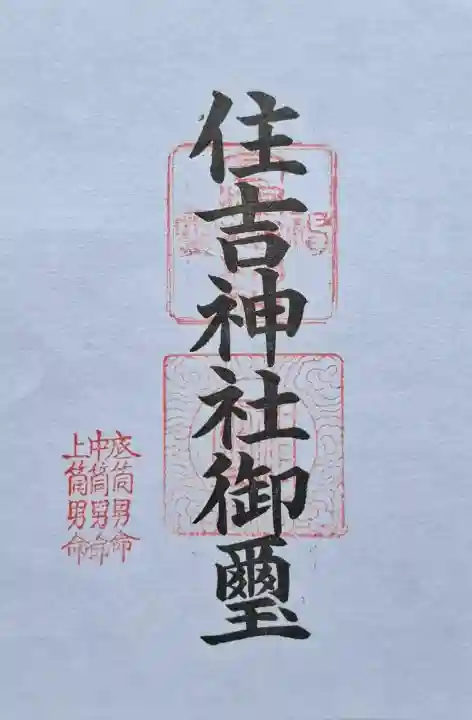 住吉神社御璽
底筒男命
中筒男命
上筒男命